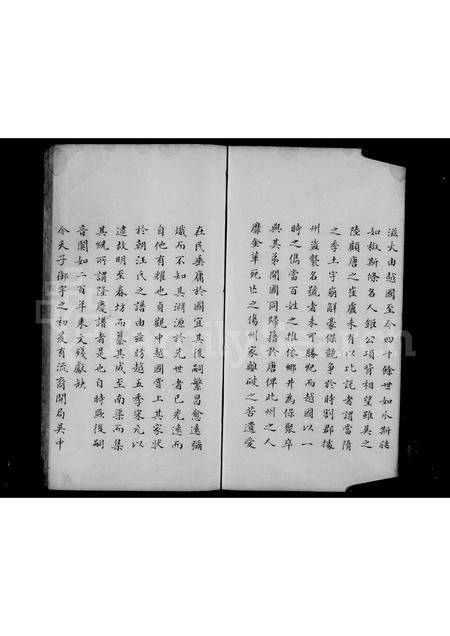 滋大由越國至今四十餘世如水斯
如椒斯條名人鉅公項背相望雖吳之
陸顧唐之崔盧未有以比說者謂當隋
之季土宇崩解豪傑競爭於時割郡據
州盜襲名號者未可勝紀而越國以一
時之儁當百姓之推依鄉井為保聚卒
與其弟開國同歸籍於唐俾此州之人
靡金革死亡之傷州家離破之苦遺愛
在民乗庸於國宜其後嗣繁昌愈遠彌
熾而不知其淵源於先世者已光遠而
自他有耀也貞觀中越國嘗上其家狀
於朝汪氏之譜由茲昉越五季宋元以
逮故明至春坊而纂其成至南渠而集
其統所謂隆慶譜者是也自時厥後嗣
音闃如二百年來文殘獻缺
今天子御宇之初爰有流裔開局吳中